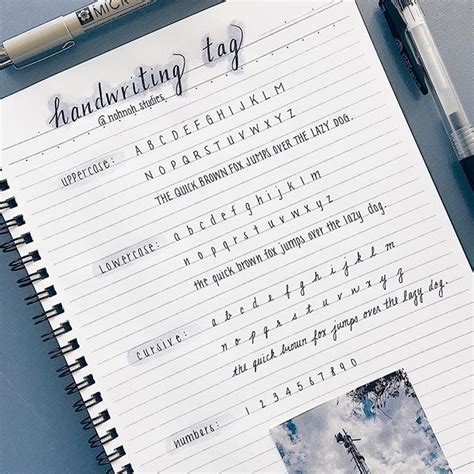 MICR
handwriting tag
@nohnoh_studies
uppercase: A B C D E F G H I J K L M
N O P Q R S T U V W X Y Z
THE QUICK BROWN FOX JUMPS OVER THE LAZY DOG.
lowercase: a b c d e f g h i j k l m
n o p q r s t u v w x y z
the quick brown fox jumps over the lazy dog.
cursive: a b c d e f g h i j k l m
n o p q r s t u v w x y z
the quick brown fox jumps over the lazy dog.
numbers: 1 2 3 4 5 6 7 8 9 0